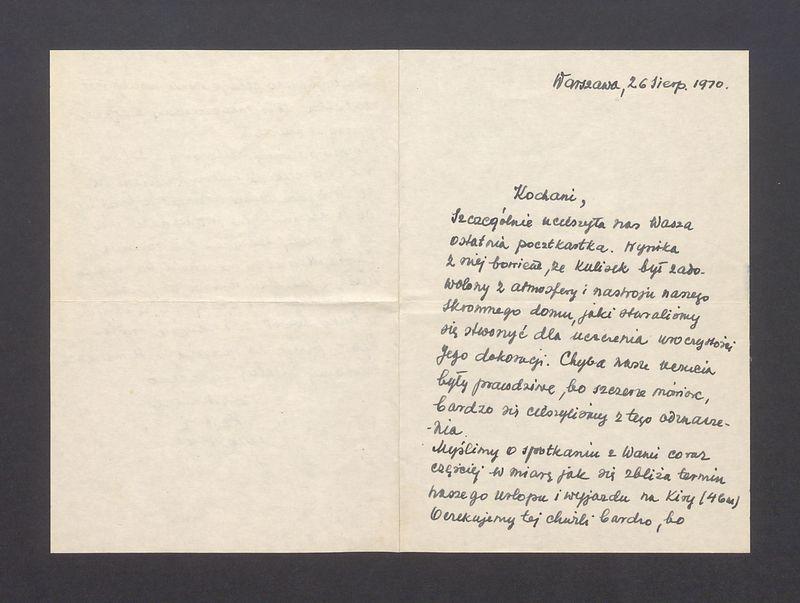 Warszawa, 26 Sierp. 1970.
Kochani,
Szczególnie ucieszyła nas Wasza
ostatnia pocztkartka. Wynika
z niej bowiem, że Kulisek był zado-
wolony z atmosfery i nastroju naszego
skromnego domu, jaki staraliśmy
się stworzyć dla uczczenia uroczystości
Jego dekoracji. Chyba nasze uczucia
były prawdziwe, bo szczerze mówiąc,
bardzo się cieszyliśmy z tego odznacze-
-nia.
Myślimy o spotkaniu z Wami coraz
częściej w miarę jak się zbliża termin
naszego urlopu i wyjazdu na Kiry
Oczekujemy tej chwili bardzo, bo